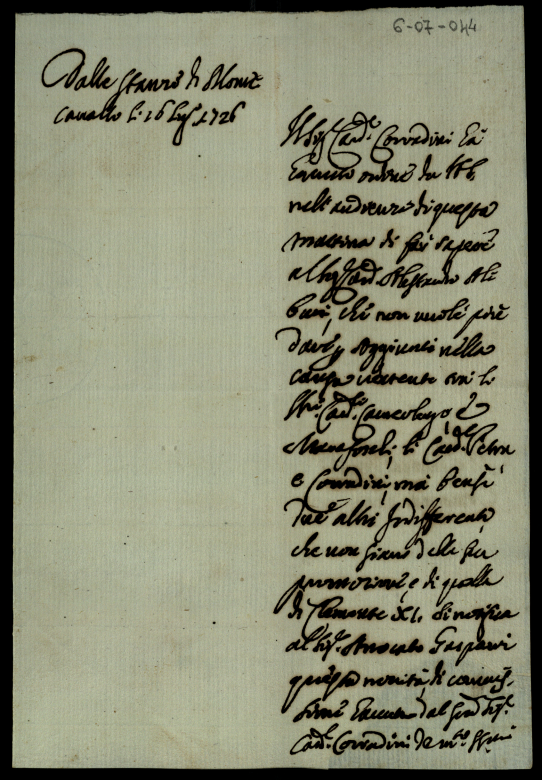 6-07-044
Dalle stanze di Monte
Cavallo li 16 Lug. 1726
Il Sig. Card.le Corradini hà
havuto ordine da
nell'audienza di questa
mattina di far sapere
al Sig. Card. Alessandro Al
bani, che non vuole più
dare p. Aggiunti nella
causa vertente trà li
SS.ri Card.li Camerlengo, e
li Card.li Petra
e Corradini, mà bensì
due altri indifferenti
che non siano della sua
promozione, e di quella
di Clemente XI. Si notifica
al Sig. Avvocato Gasparri
questa novità di commis-
sione havuta dal Sig.
Card. Corradini